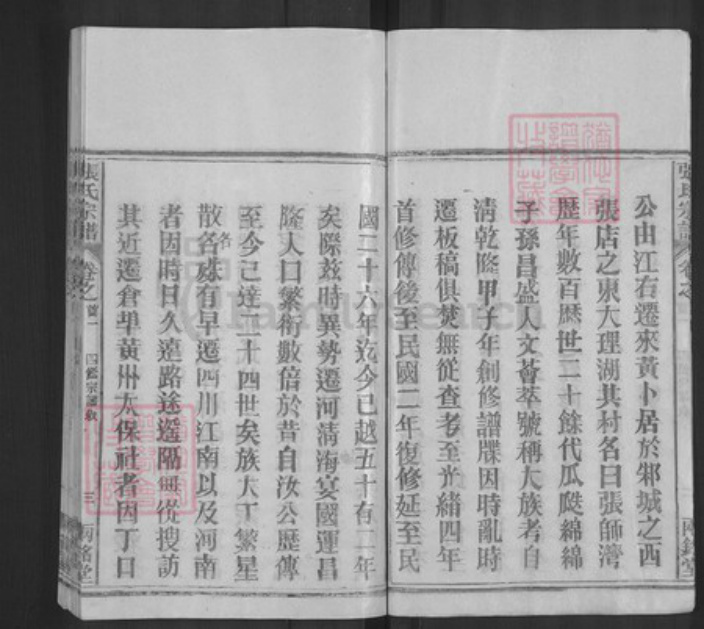 張氏宗譜
卷之
兩銘堂
公由江右遷來黃卜居於邾城之西
張店之東大理湖其村名曰張師灣
歷年數百歷世二十餘代瓜瓞綿綿
子孫昌盛人文薈萃號稱大族考自
清乾隆甲子年創修譜牒因時亂時
遷板稿俱焚無從查考至光緒四年
首修傳後至民國二年復修延至民
國二十六年迄今已越五十有二年
矣際茲時異勢遷河清海宴國運昌
隆人口繁衍數倍於昔自汝公歷傳
至今已達二十四世矣族大丁繁星
散各處有早遷四川江南以及河南
者因時日久遠路途遙隔無從搜訪
其近遷倉埠黃州太保社者因丁口
張氏宗譜
卷之首一
四鑑宗譜敘
三
兩銘堂
FamilySearch